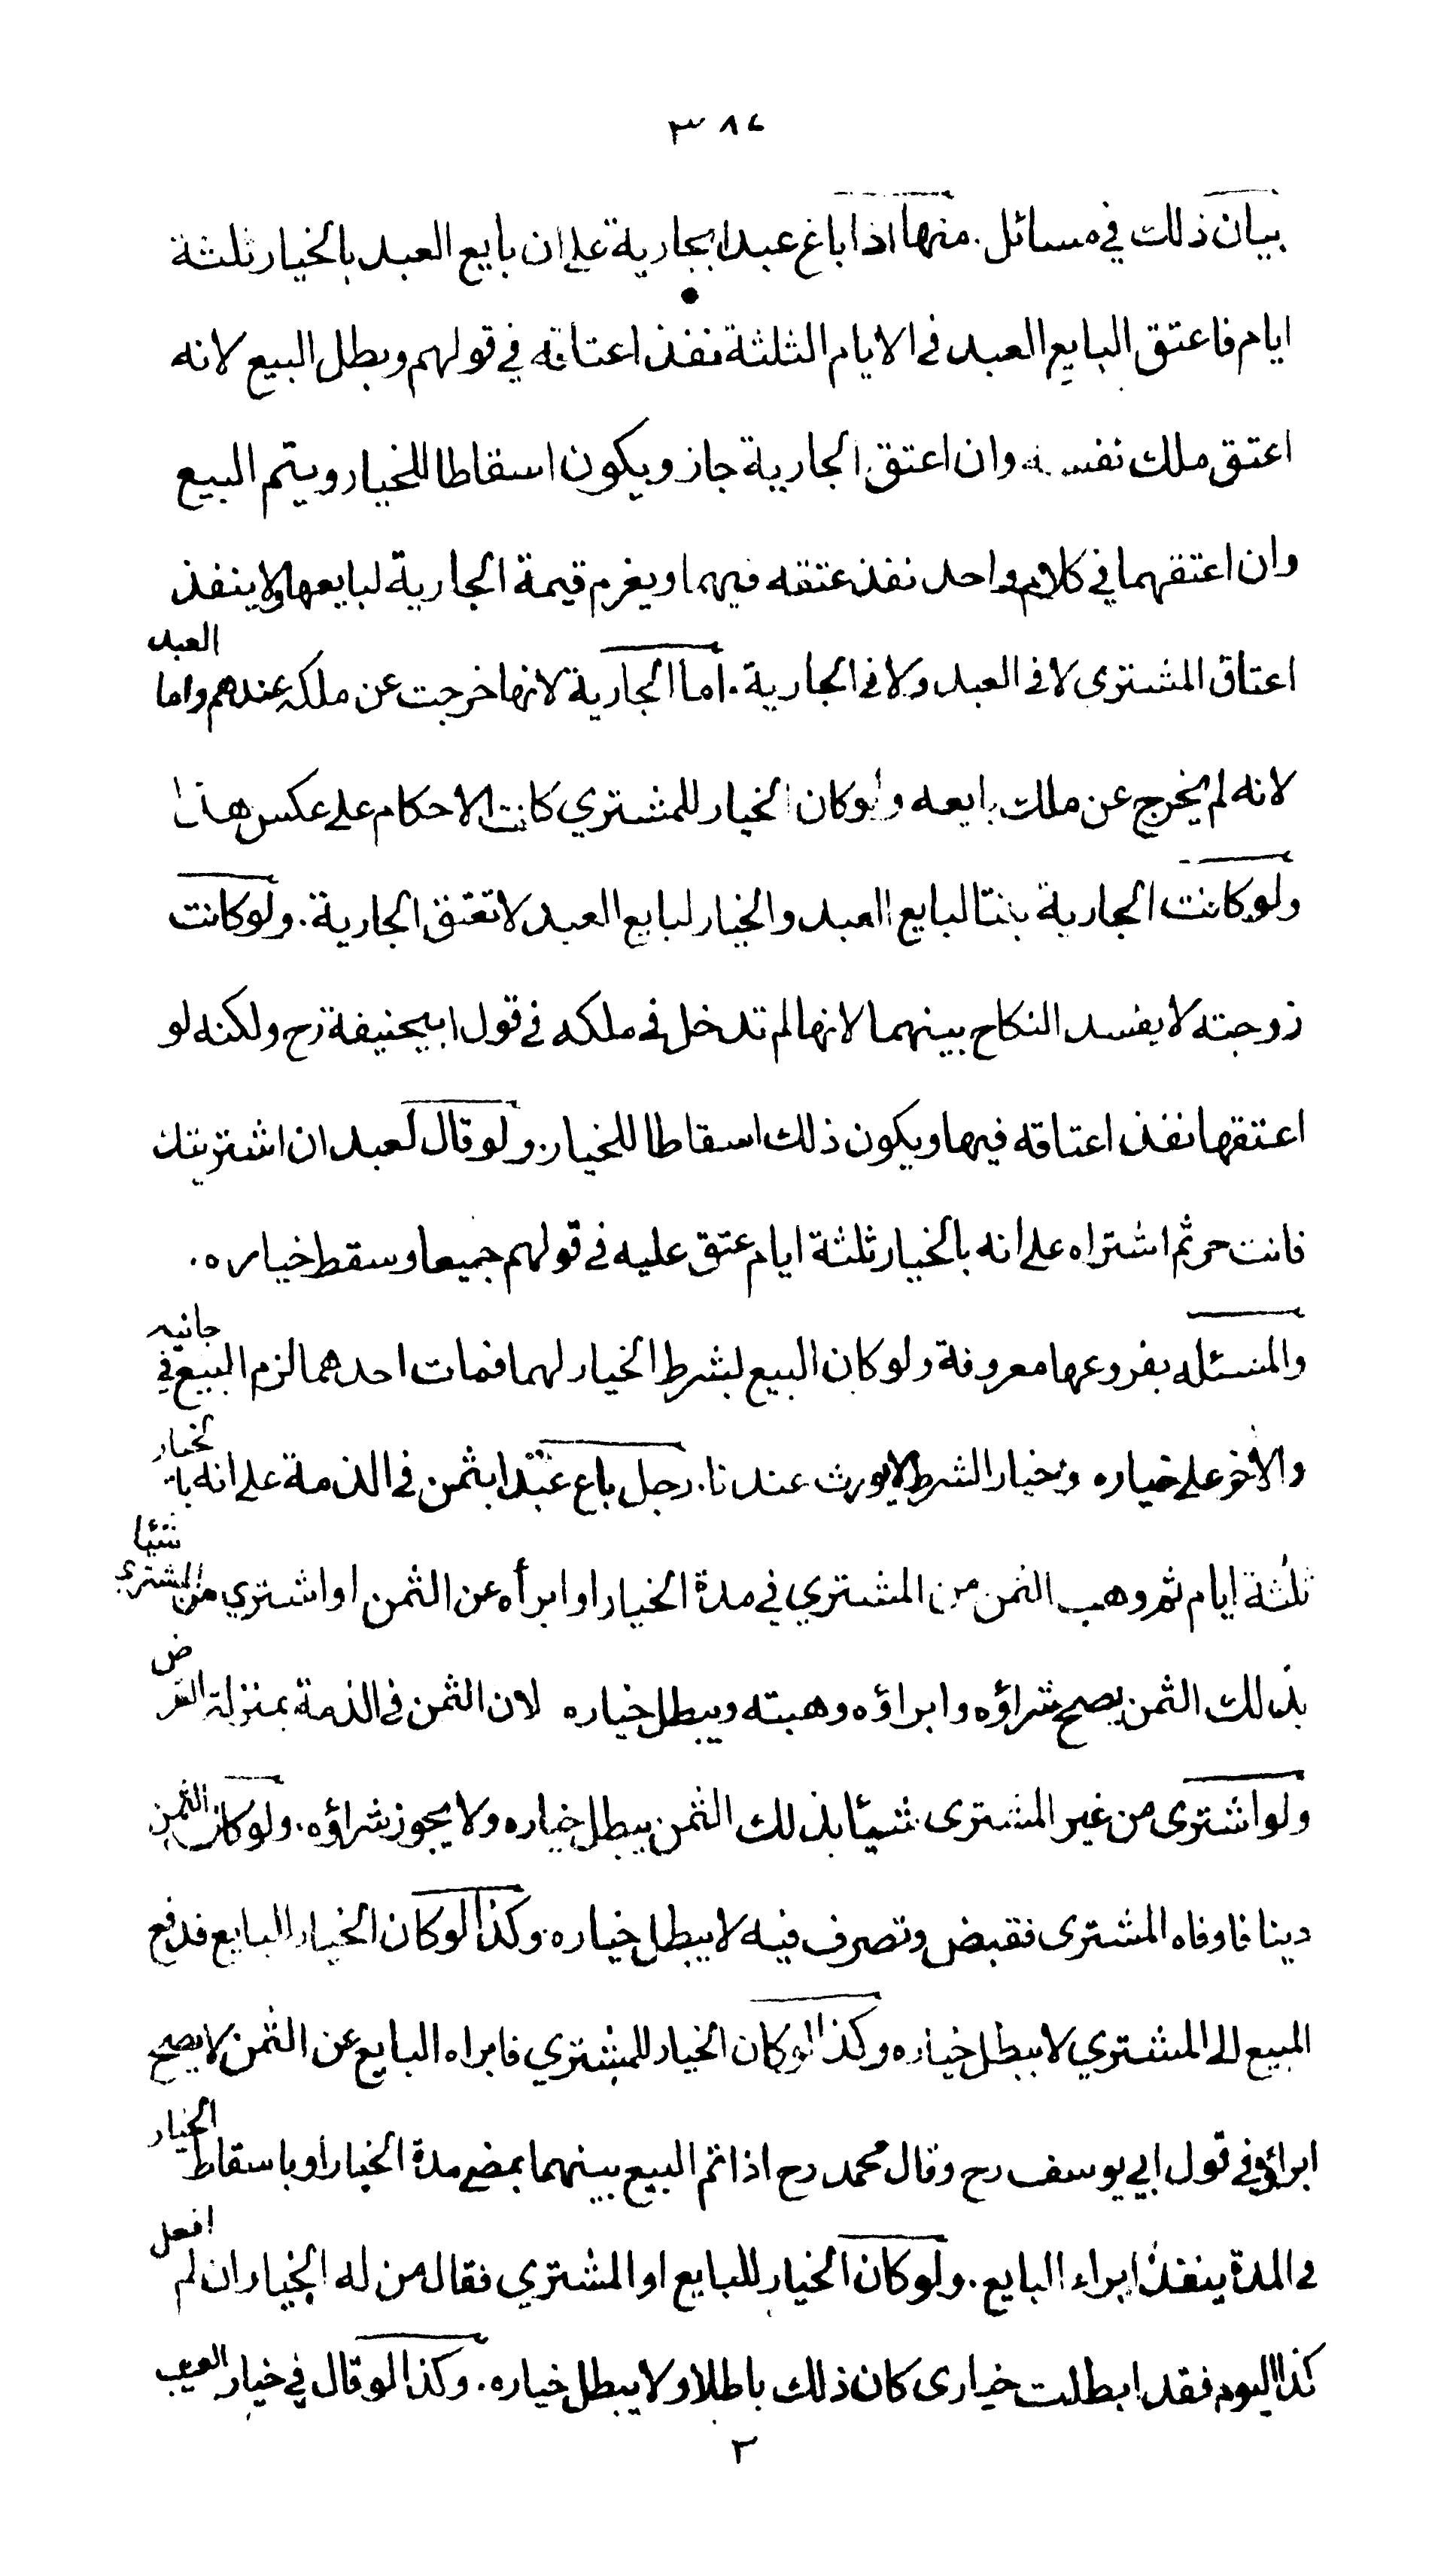 ٣٨٤
بيان ذلك في مسائل. منها اذا باع عبدا بجارية على ان بايع العبد بالخيار ثلثة
ايام فاعتق البايع العبد في الايام الثلثة نفذ اعتاقه في قولهم وبطل البيع لانه
اعتق ملك نفسه. وان اعتق الجارية جاز ويكون اسقاطا للخيار ويتم البيع
وان اعتقهما في كلام واحد نفذ عتقه فيهما ويغرم قيمة الجارية لبايعها ولا ينفذ
اعتاق المشترى لا في العبد ولا في الجارية. اما الجارية لانها خرجت عن ملكه عندهم واما العبد
لانه لم يخرج عن ملك بايعه ولو كان الخيار للمشتري كانت الاحكام على عكس هذا
ولو كانت الجارية بنتا لبايع العبد والخيار لبايع العبد لا تعتق الجارية. ولو كانت
زوجته لا يفسد النكاح بينهما لانها لم تدخل في ملكه في قول ابيحنيفة رح ولكنه لو
اعتقها نفذ اعتاقه فيها ويكون ذلك اسقاطا للخيار. ولو قال لعبد ان اشتريتك
فانت حر ثم اشتراه على انه بالخيار ثلثة ايام عتق عليه في قولهم جميعا وسقط خياره.
والمسئله بفروعها معروفة ولو كان البيع بشرط الخيار لهما فمات احدهما لزم البيع في جانبه
والاخر على خياره وخيار الشرط لا يورث عندنا. رجل باع عبدا بثمن في الذمة على انه بالخيار
ثلثة ايام ثم وهب الثمن من المشتري في مدة الخيار او ابرأه عن الثمن او اشتري من المشتري شيئا
بذلك الثمن يصح شراؤه وابراؤه وهبته ويبطل خياره لان الثمن في الذمة بمنزلة القرض
ولو اشترى من غير المشترى شيئا بذلك الثمن يبطل خياره ولا يجوز شراؤه. ولو كان الثمن
دينا فاوفاه المشترى فقبض وتصرف فيه لا يبطل خياره. وكذا لو كان الخيار للبايع فدفع
المبيع الى المشتري لا يبطل خياره وكذا لو كان الخيار للمشتري فابراه البايع عن الثمن لا يصح
ابراؤه في قول ابي يوسف رح وقال محمد رح اذا تم البيع بينهما بمضي مدة الخيار او باسقاط الخيار
في المدة ينفذ ابراء البايع. ولو كان الخيار للبايع او المشتري فقال من له الخيار ان لم افعل
كذا اليوم فقد ابطلت خيارى كان ذلك باطلا ولا يبطل خياره. وكذا لو قال في خيار العيب
٣